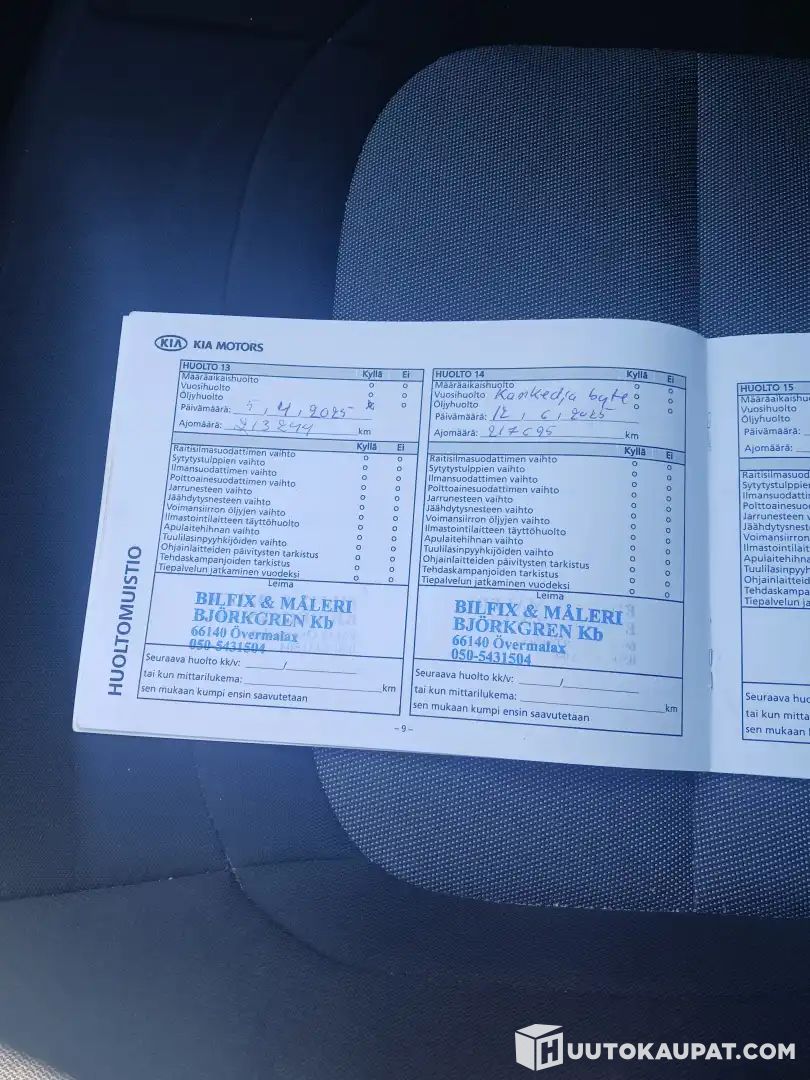 KIA KIA MOTORS
HUOLTO 13
Kyllä Ei
Määräaikaishuolto
Vuosihuolto
Öljyhuolto
Päivämäärä: 5, 4, 2025
Ajomäärä: 213244 km
Kyllä Ei
Raitisilmasuodattimen vaihto
Sytytystulppien vaihto
Ilmansuodattimen vaihto
Polttoainesuodattimen vaihto
Jarrunesteen vaihto
Jäähdytysnesteen vaihto
Voimansiirron öljyjen vaihto
Ilmastointilaitteen täyttöhuolto
Apulaitehihnan vaihto
Tuulilasinpyyhkijöiden vaihto
Ohjainlaitteiden päivitysten tarkistus
Tehdaskampanjoiden tarkistus
Tiepalvelun jatkaminen vuodeksi
Leima
BILFIX & MÅLERI
BJÖRKGREN Kb
66140 Övermalax
050-5431504
Seuraava huolto kk/v: /
tai kun mittarilukema: km
sen mukaan kumpi ensin saavutetaan
HUOLTO 14
Kyllä Ei
Määräaikaishuolto
Vuosihuolto Kamkedja byte
Öljyhuolto
Päivämäärä: 12, 6, 2025
Ajomäärä: 217695 km
Kyllä Ei
Raitisilmasuodattimen vaihto
Sytytystulppien vaihto
Ilmansuodattimen vaihto
Polttoainesuodattimen vaihto
Jarrunesteen vaihto
Jäähdytysnesteen vaihto
Voimansiirron öljyjen vaihto
Ilmastointilaitteen täyttöhuolto
Apulaitehihnan vaihto
Tuulilasinpyyhkijöiden vaihto
Ohjainlaitteiden päivitysten tarkistus
Tehdaskampanjoiden tarkistus
Tiepalvelun jatkaminen vuodeksi
Leima
BILFIX & MÅLERI
BJÖRKGREN Kb
66140 Övermalax
050-5431504
Seuraava huolto kk/v: /
tai kun mittarilukema: km
sen mukaan kumpi ensin saavutetaan
HUOLTO 15
Vuosihuolto
Öljyhuolto
Päivämäärä:
Ajomäärä:
Seuraava
tai kun
sen mukaan
HUOLTOMUISTIO
-9-
HUUTOKAUPAT.COM